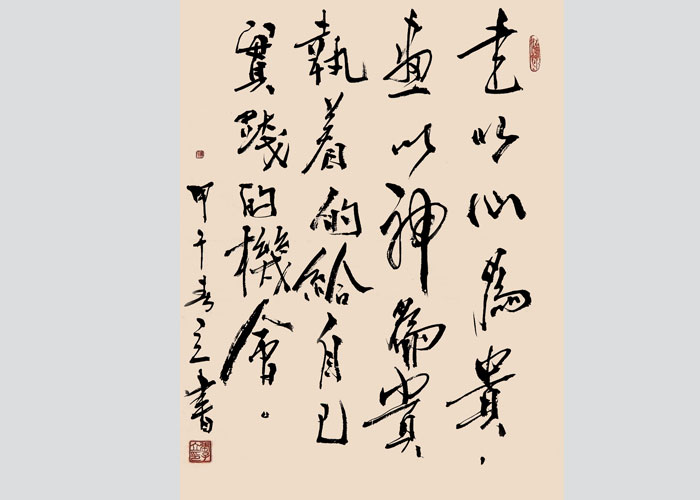 走以心為貴，
畫以神為貴
執着的給自己
實踐的機會。
甲午春立書